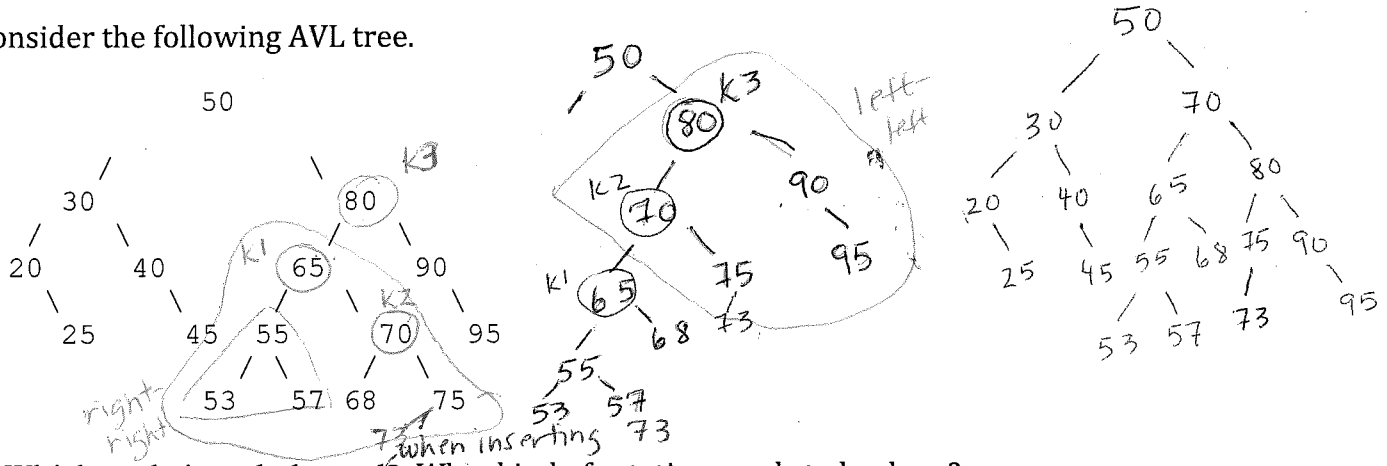 onsider the following AVL tree.
50
30 80 k3
20 40 k1 65 90
25 45 55 k2 70 95
53 57 68 75
right-
right
73
when inserting 73
50
80 k3
k2 70 90
k1 65 75 95
68 73
55
53 57
left-
left
50
30 70
20 40 65 80
25 45 55 68 75 90
53 57 73 95